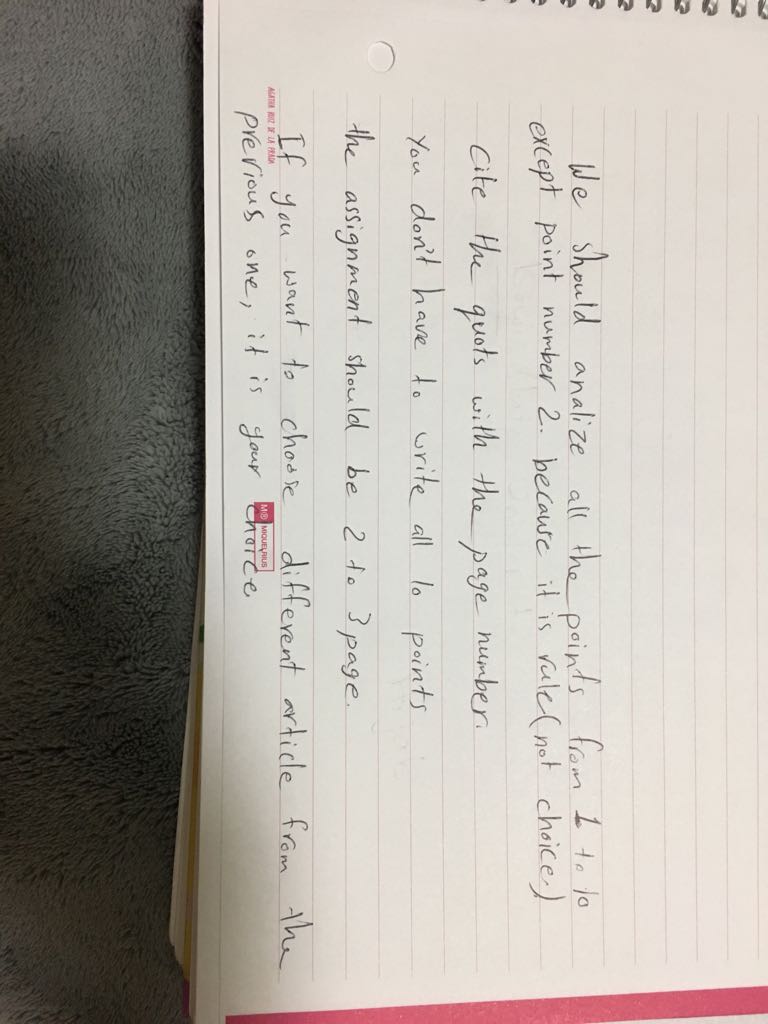 We should analize all the points from 1 to 10
except point number 2. because it is rule (not choice.)
Cite the quots with the page number.
You don't have to write all 10 points
the assignment should be 2 to 3 page.
If you want to choose different article from the
previous one, it is your choice.
AGATHA RUIZ DE LA PRADA
MR MIQUELRIUS